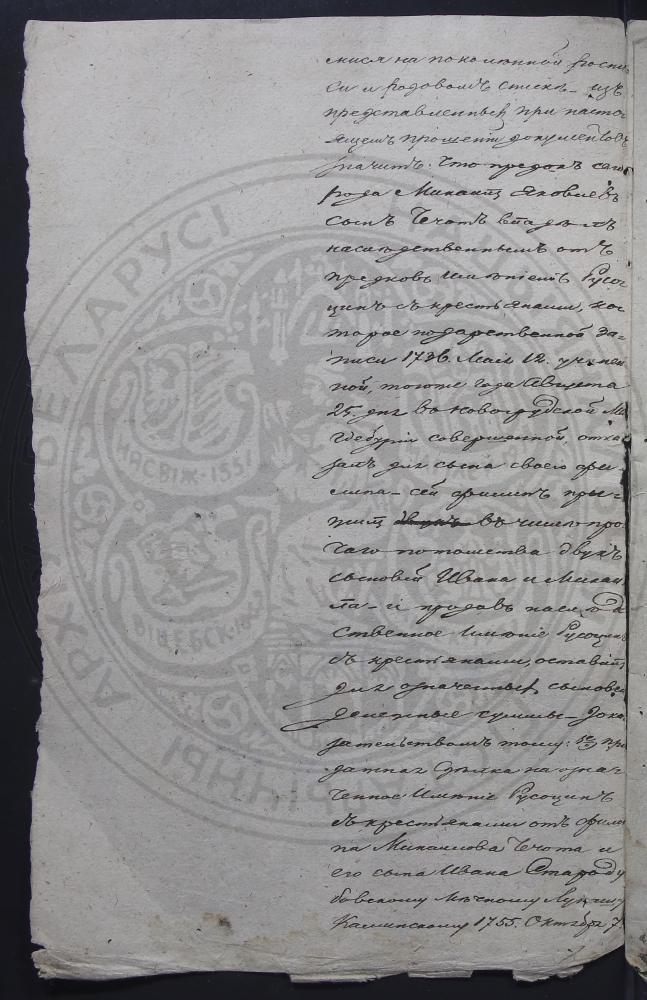 мися на поколенной роспи
си и родовомъ списке – изъ
представленныхъ при насто
ящемъ прошеніи документовъ
значитъ: Что предокъ сего
рода Михаилъ Яковлевъ
сынъ Чечотъ владелъ
наследственнымъ отъ
предковъ именіемъ Русо
цинъ съ крестьянами, ко
торое по дарственной за
писи 1736. Мая 12. учинен
ной, тогоже года Августа
25. дня въ Новогрудской Ма
гдебургіи совершенной, отка
залъ для сына своего Фи
липа – сей Филипъ при
жилъ въ числе про
чаго потомства двухъ
сыновей Ивана и Михаи
ла – и продавъ наслед
ственное именіе Русоцинъ
съ крестьянами, оставилъ
для означенныхъ сыновей
денежные суммы – Дока
зательствомъ тому: про
дажная зделка на озна
ченное Именіе Русоцинъ
съ крестьянами отъ Фили
па Михаилова Чечота и
его сына Ивана Староду
бовскому Мечному
Каминскому 1755. Октября 7.
АРХІЎ БЕЛАРУСІ
НЯСВІЖ-1551
ВІЦЕБСК